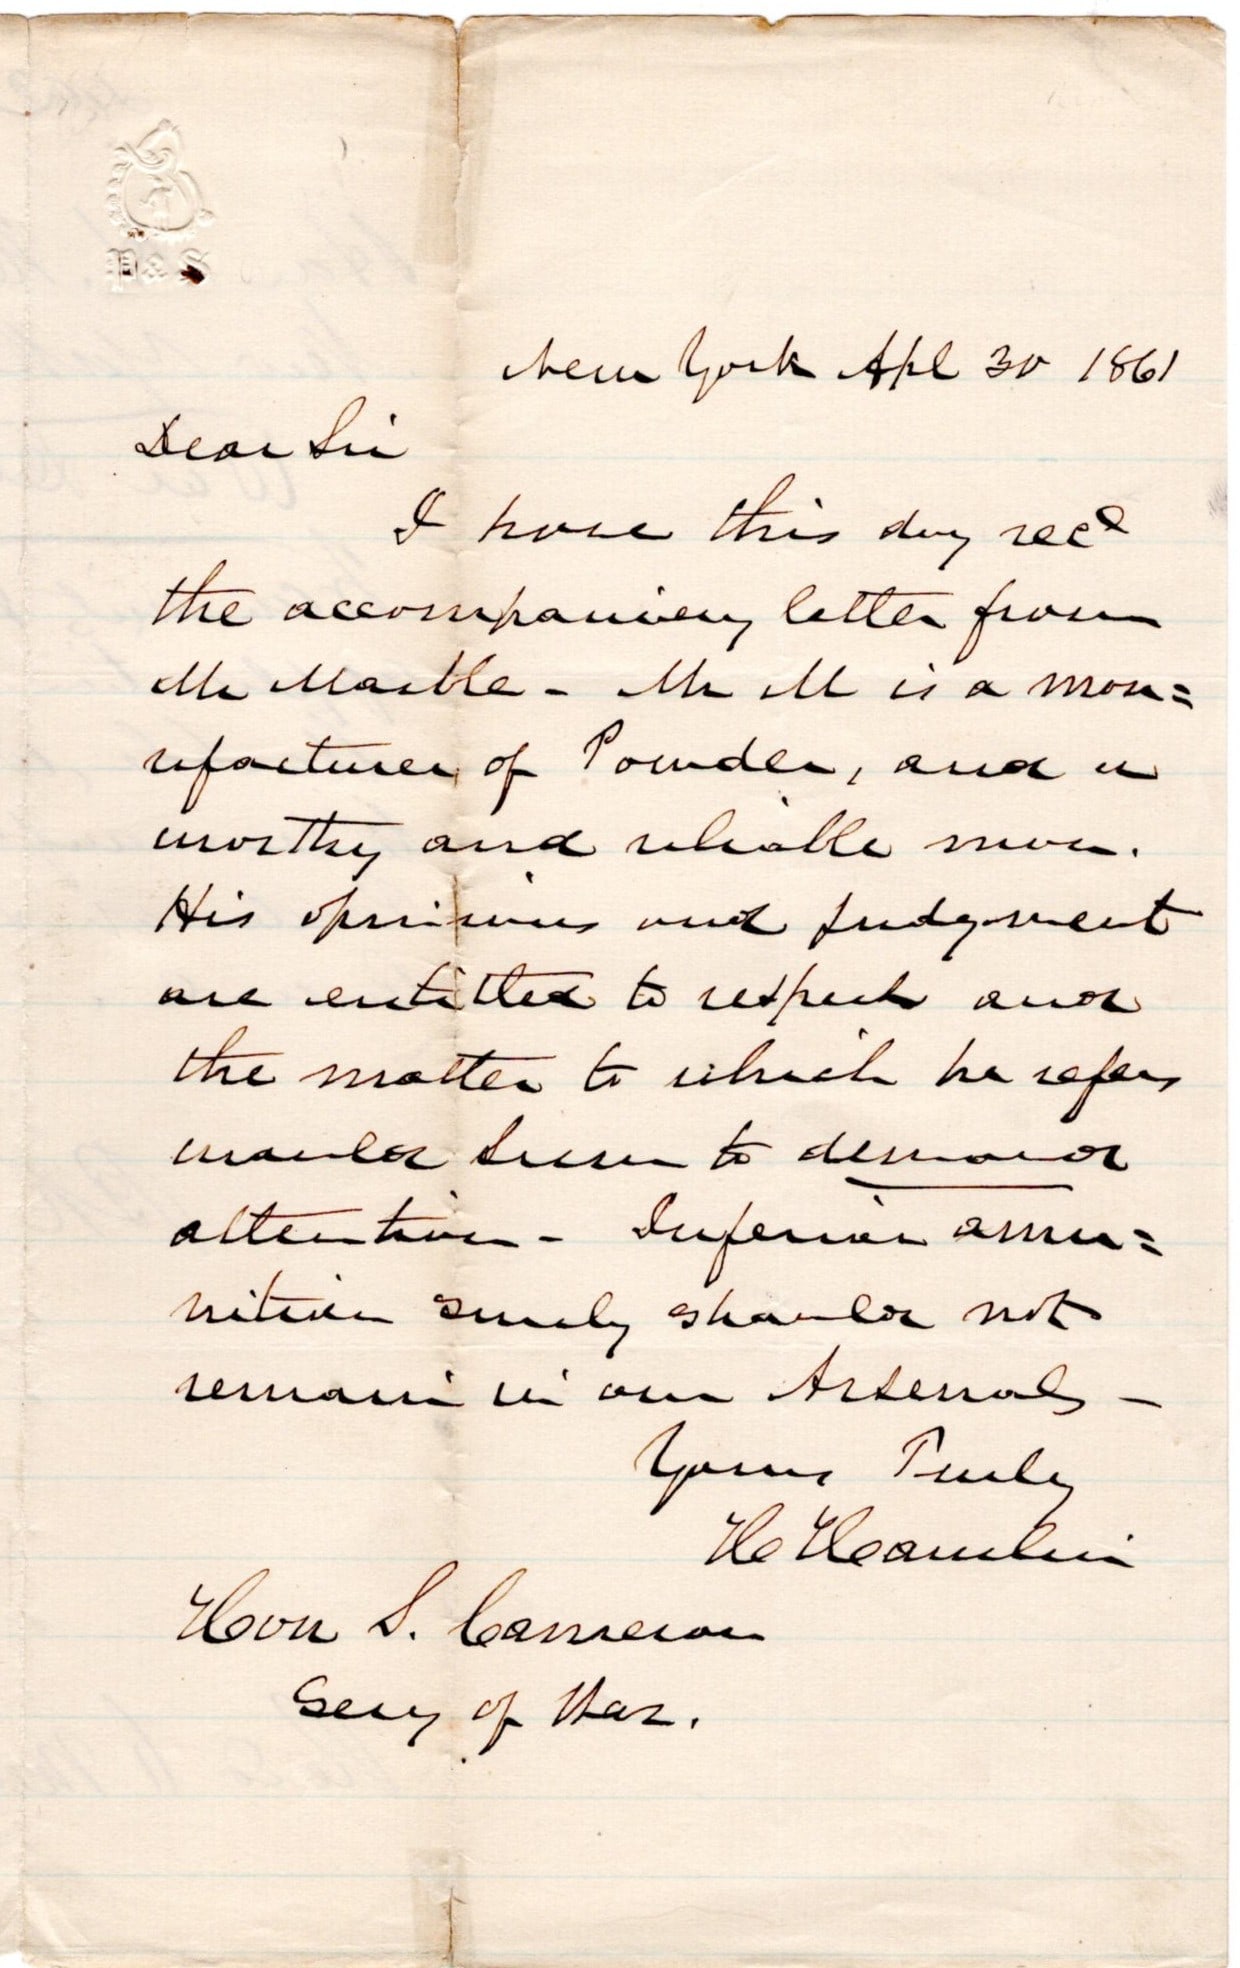 P & S
New York Apl 30 1861
Dear Sir
I have this day recd
the accompanying letter from
Mr Marble - Mr M is a man=
ufacturer of Powder, and a
worthy and reliable man.
His opinions and judgment
are entitled to respect and
the matter to which he refers
would seem to demand
attention - Inferior amu=
nition surely should not
remain in our Arsenals -
Yours Truly
H Hamlin
Hon S. Cameron
Secy of War.